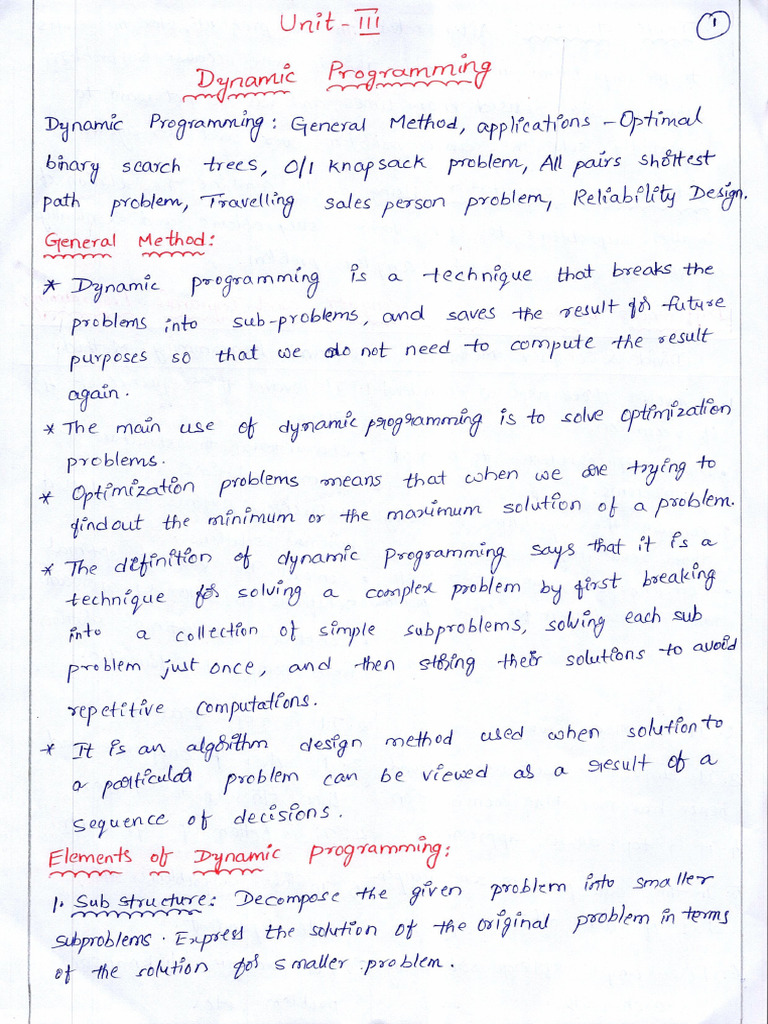 Unit - III
1
Dynamic Programming
Dynamic Programming: General Method, applications - Optimal
binary search trees, 0/1 knapsack problem, All pairs shortest
path problem, Travelling sales person problem, Reliability Design.
General Method:
* Dynamic programming is a technique that breaks the
problems into sub-problems, and saves the result for future
purposes so that we do not need to compute the result
again.
* The main use of dynamic programming is to solve optimization
problems.
* Optimization problems means that when we are trying to
find out the minimum or the maximum solution of a problem.
* The definition of dynamic programming says that it is a
technique for solving a complex problem by first breaking
into a collection of simple subproblems, solving each sub
problem just once, and then storing their solutions to avoid
repetitive computations.
* It is an algorithm design method used when solution to
a particular problem can be viewed as a result of a
sequence of decisions.
Elements of Dynamic programming:
1. Sub structure: Decompose the given problem into smaller
subproblems. Express the solution of the original problem in terms
of the solution for smaller problem.